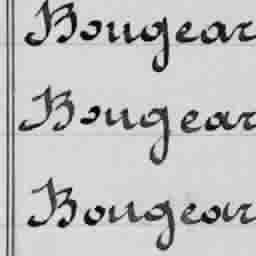 Bougear
Bougear
Bougear